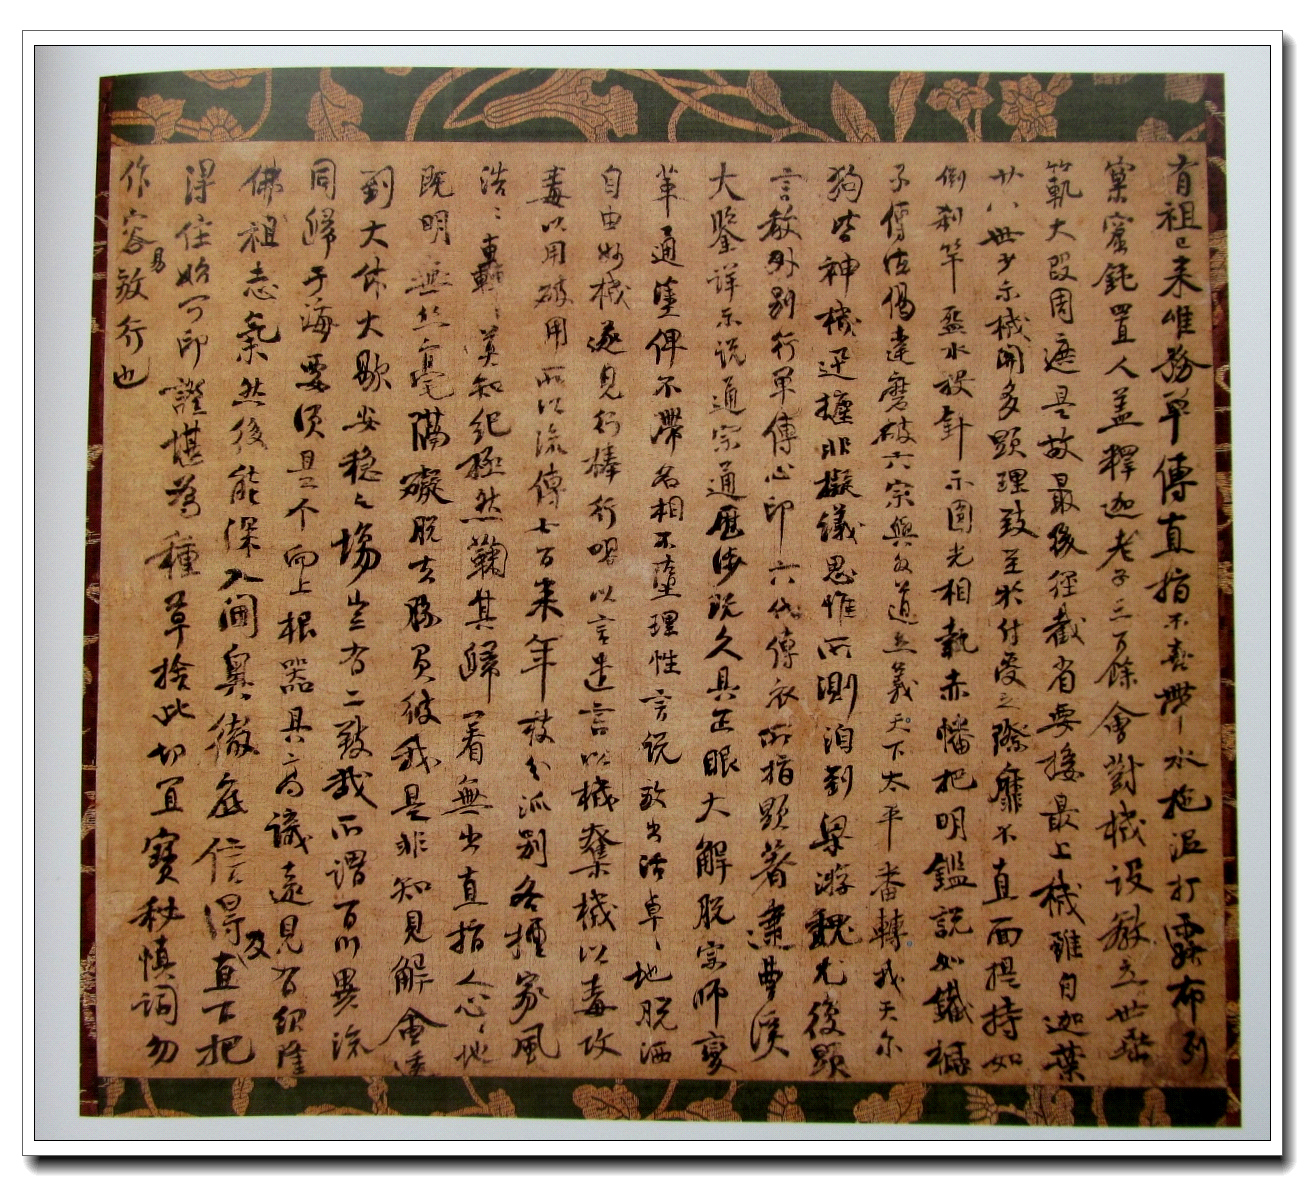 有祖已来唯務單傳直指不喜帶水拖泥打露布列
窠窟鈍置人盖釋迦老子三百餘會對機設教立世垂
範大段周遮是故最後徑截省要接最上機雖自迦葉
廿八世少示機関多顯理致至於付受之際靡不直面提持如
倒刹竿盋水投針示圓光相執赤幡把明鑑説如鐵橛
子傳法偈達磨破六宗與外道立義天下太平番轉我天尓
狗皆神機迅捷非擬議思惟所測洎到梁游魏尤復顕
言教外別行單傳心印六代傳衣所指顕著逮曹溪
大鑒詳示説通宗通歴渉既久具正眼大解脱宗師變
革通塗俾不滯名相不墮理性言説放出活卓〻地脱洒
自由妙機遂見行棒行喝以言遣言以機奪機以毒攻
毒以用破用所以流傳七百来年枝分派別各擅家風
浩〻轟〻莫知紀極然鞠其歸着無出直指人心〻地
既明無絲毫隔礙脱去勝負彼我是非知見解會透
到大休大歇安穏之場豈有二致哉所謂百川異流
同歸于海要須是个向上根器具高識遠見有紹隆
佛祖志氣然後能深入閫奥徹底信得及直下把
得住始可印證堪為種草捨此切宜寶秘慎詞勿
作容易放行也